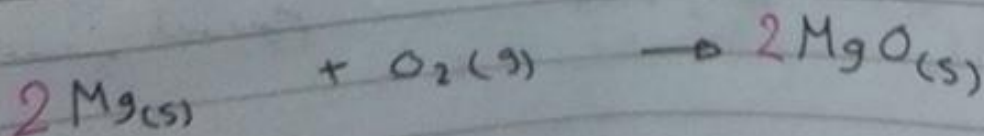 2 Mg(s) + O₂(g) → 2 MgO(s)